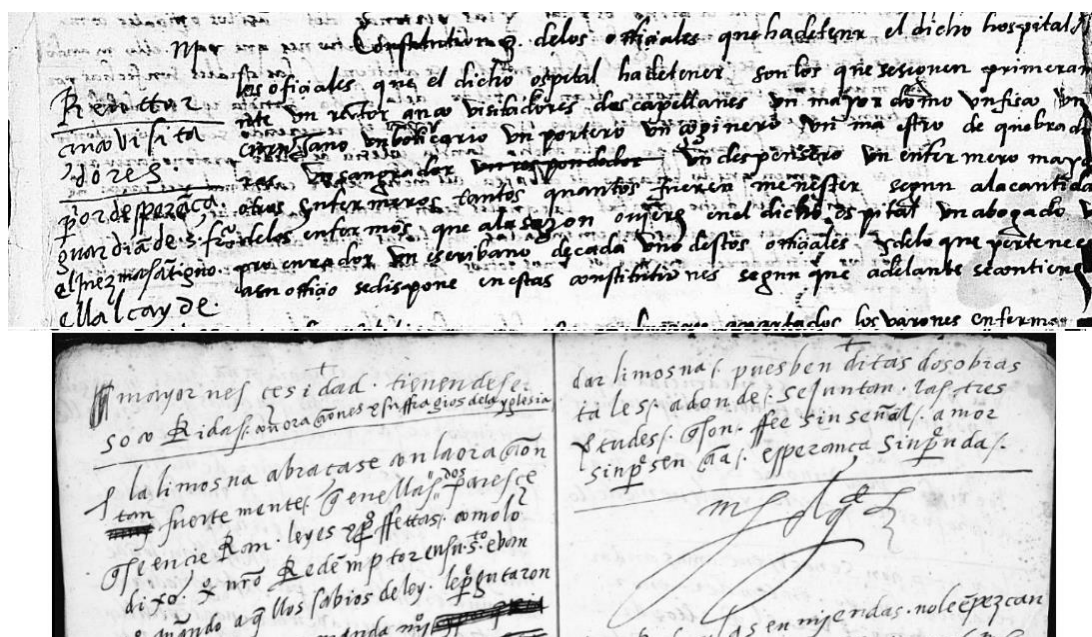 Constitutiones. delos officiales que hadetener el dicho hospital
los oficiales que el dicho ospital hadetener son los que sesiguen primeram
nte vn rector cinco visitadores dos capellanes vn mayordomo vn fisico vn
cirurgano vn boticario vn portero vn copinero vn maestro de quebradu
ras vn sangrador vn respondedor vn despensero vn enfermero mayor
otros enfermeros tantos quantos fueren menester segun ala cantida
delos enfermos que ala sazon oujere enel dicho ospital vn abogado
procurador vn escribano de cada vno destos officiales y delo que pertene
asu officio sedispone en estas constitutiones segun que adelante secontien
apartados los varones enfermos
Rector
cinco visita
dores.
por desperaça
guardiā de s. frco
el juez mas ātiguo.
ell alcayde.
mayor nesçesidad. tienen deser
socoRidas. con oraciones & suffragios dela yglesia
la limosna abraçase con la oraçion
tan fuerte mente, q̄ en ellas dos paresçe
leyes perffettas. como lo
dixo. nr̄o Redēmptor en su sto evan
quando aq̄llos sabios de ley. le preguntaron
dar limosna. pues ben ditas dos obras
tales. adonde. se juntan. las tres
virtudes. q̄ son. ffee sin señal. amor
esperança sin
en mjendas. no le ēpezcan